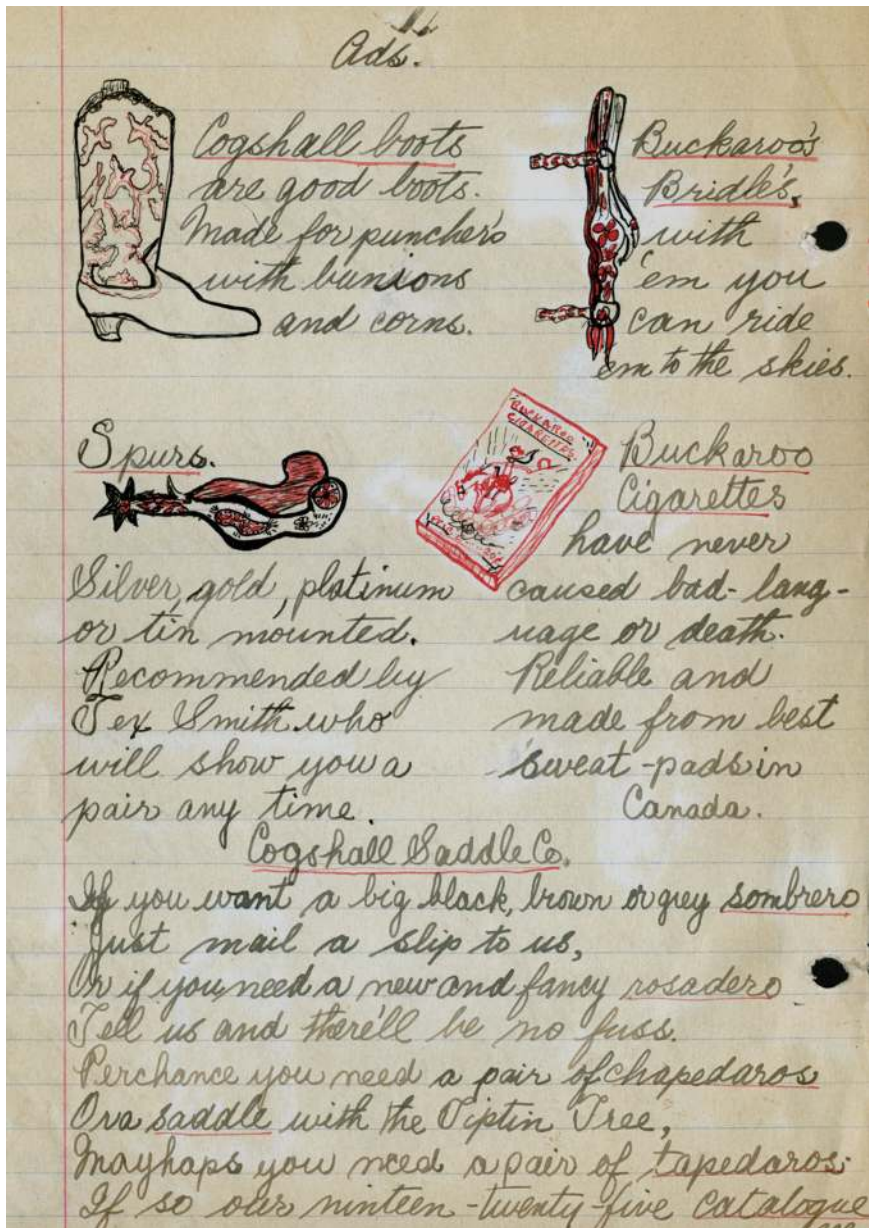 Ads.
Cogshall boots
are good boots.
Made for puncher's
with bunions
and corns.
Buckaroo's
Bridle's,
with
'em you
can ride
em to the skies.
Spurs.
Silver, gold, platinum
or tin mounted.
Recommended by
Tex Smith who
will show you a
pair any time.
BUCKAROO
CIGARETTES
Buckaroo
Cigarettes
have never
caused bad-lang-
uage or death.
Reliable and
made from best
sweat-pads in
Canada.
Cogshall Saddle Co.
If you want a big black, brown or grey sombrero
Just mail a slip to us,
Or if you need a new and fancy rosadero
Tell us and there'll be no fuss.
Perchance you need a pair of chapedaros
Or a saddle with the Tiptin Tree,
Mayhaps you need a pair of tapedaros;
If so our nineteen-twenty-five catalogue